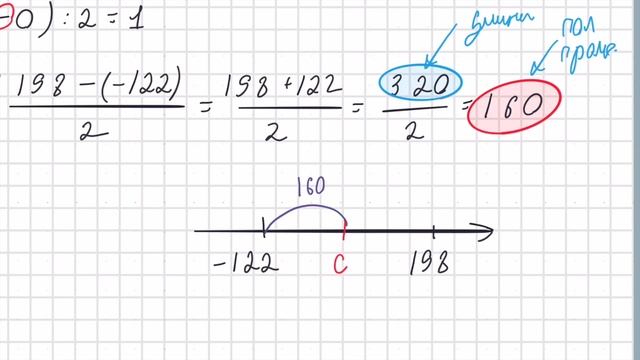 0) : 2 = 1
длина
пол
пром.
198 - (-122) / 2 = 198 + 122 / 2 = 320 / 2 = 160
160
-122 С 198